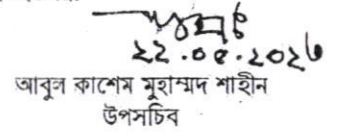 ২২.০৫.২০২৬
আবুল কাশেম মুহাম্মদ শাহীন
উপসচিব